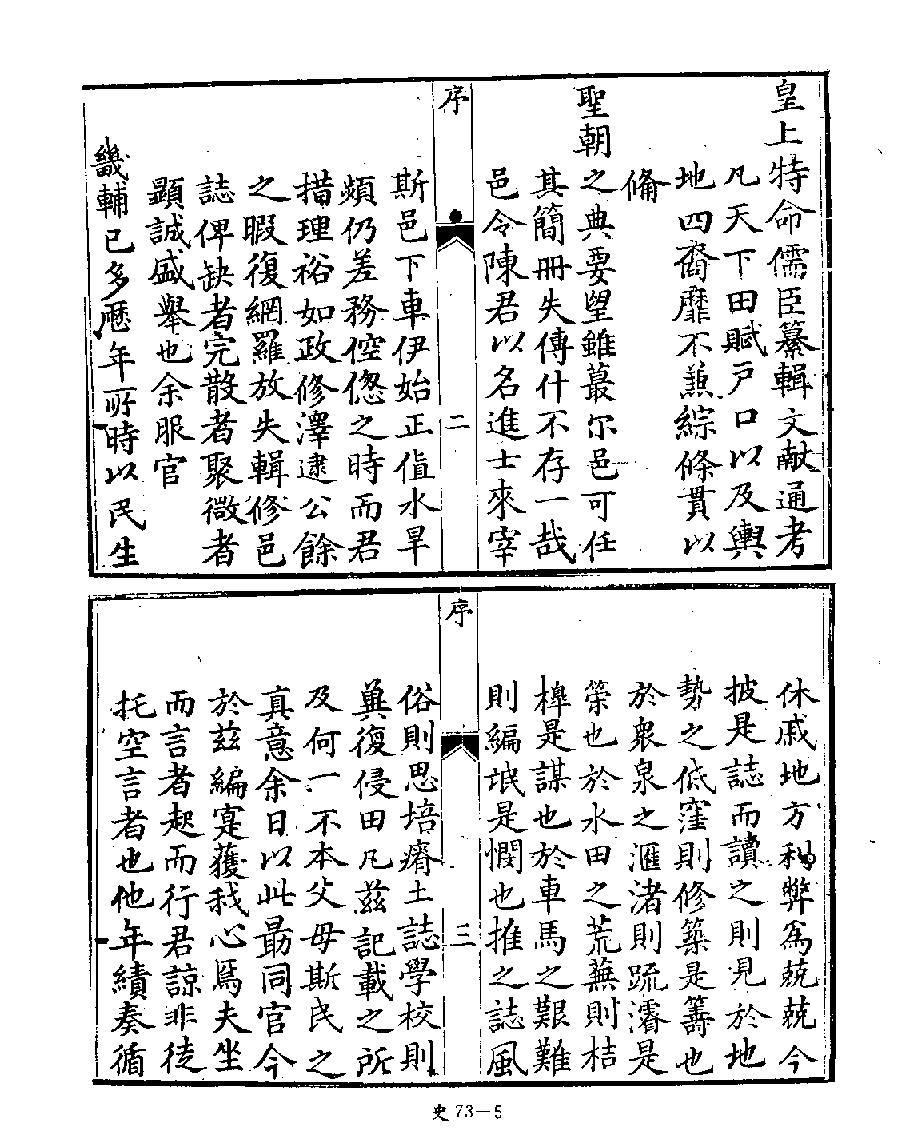 皇上特命儒臣纂輯文献通考
凡天下田賦戸口以及輿
地四裔靡不兼綜條貫以
備
聖朝之典要望雖蕞尔邑可任
其簡冊失傳什不存一哉
邑令陳君以名進士來宰
序
二
斯邑下車伊始正值水旱
頻仍差務倥偬之時而君
措理裕如政修澤逮公餘
之暇復網羅放失輯修邑
誌俾缺者完散者聚微者
顯誠盛舉也余服官
畿輔已多歷年所時以民生
休戚地方利弊為兢兢今
披是誌而讀之則見於地
勢之低窪則修築是籌也
於衆泉之滙渚則疏濬是
策也於水田之荒蕪則桔
槹是謀也於車馬之艱難
則編氓是憫也推之誌風
序
三
俗則思培瘠土誌學校則
冀復侵田凡茲記載之所
及何一不本父母斯民之
真意余日以此勗同官今
於茲編寔獲我心焉夫坐
而言者起而行君諒非徒
托空言者也他年績奏循
史 73—5